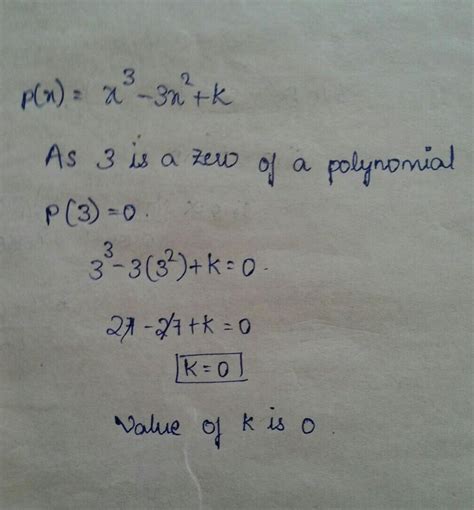 p(x) = x³ - 3x² + k
As 3 is a zero of a polynomial
P(3) = 0.
3³ - 3(3²) + k = 0.
27 - 27 + k = 0
k = 0
Value of k is 0.